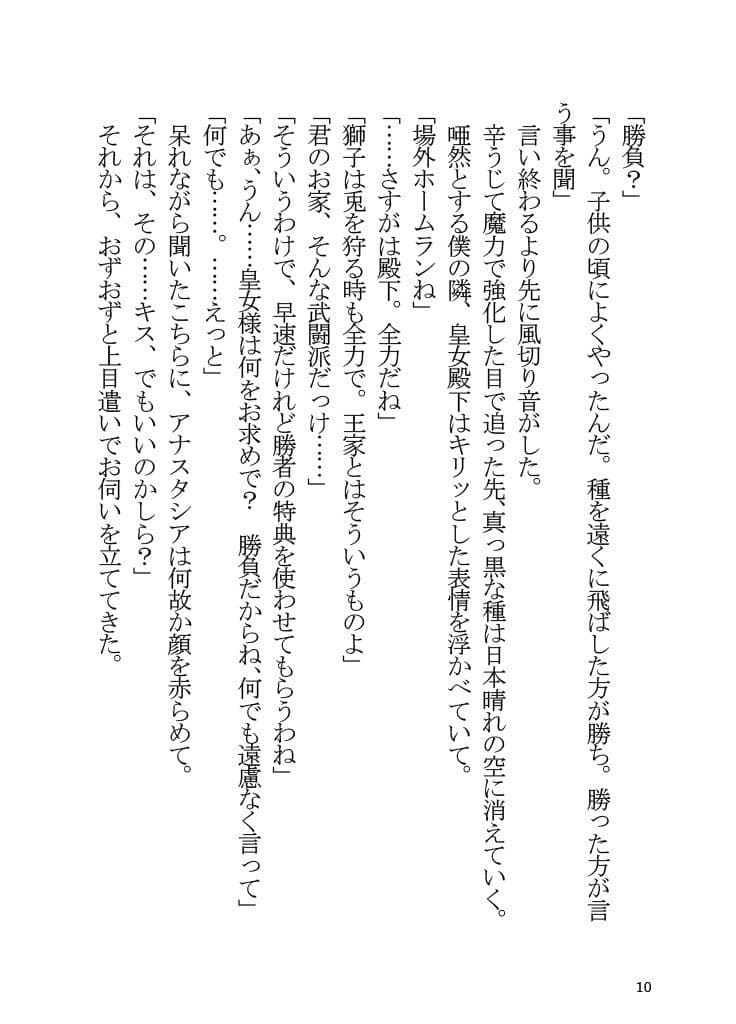 「勝負？」
「うん。子供の頃によくやったんだ。種を遠くに飛ばした方が勝ち。勝った方が言
う事を聞」
言い終わるより先に風切り音がした。
辛うじて魔力で強化した目で追った先、真っ黒な種は日本晴れの空に消えていく。
唖然とする僕の隣、皇女殿下はキリッとした表情を浮かべていて。
「場外ホームランね」
「……さすがは殿下。全力だね」
「獅子は兎を狩る時も全力で。王家とはそういうものよ」
「君のお家、そんな武闘派だっけ……」
「そういうわけで、早速だけれど勝者の特典を使わせてもらうわね」
「あぁ、うん……皇女様は何をお求めで？　勝負だからね、何でも遠慮なく言って」
「何でも……。……えっと」
呆れながら聞いたこちらに、アナスタシアは何故か顔を赤らめて。
「それは、その……キス、でもいいのかしら？」
それから、おずおずと上目遣いでお伺いを立ててきた。
10